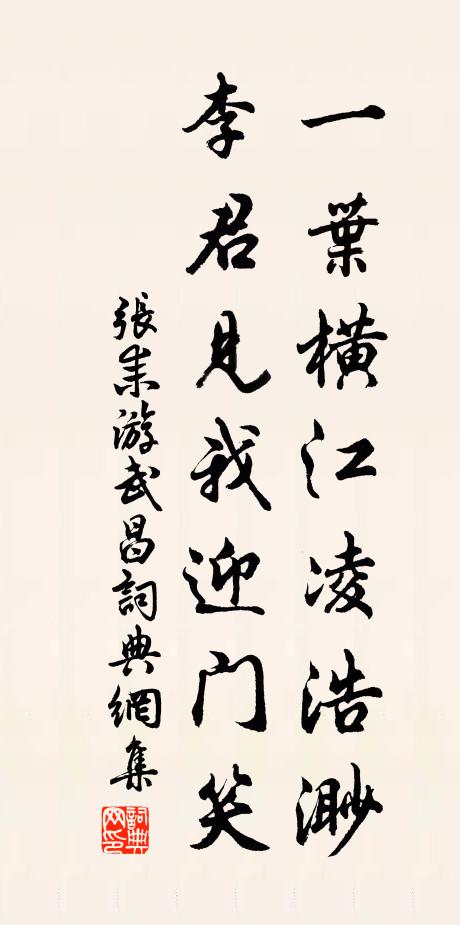 一葉橫江凌浩渺
李君見我迎門笑
張耒游武昌詞典網集
詞典網印